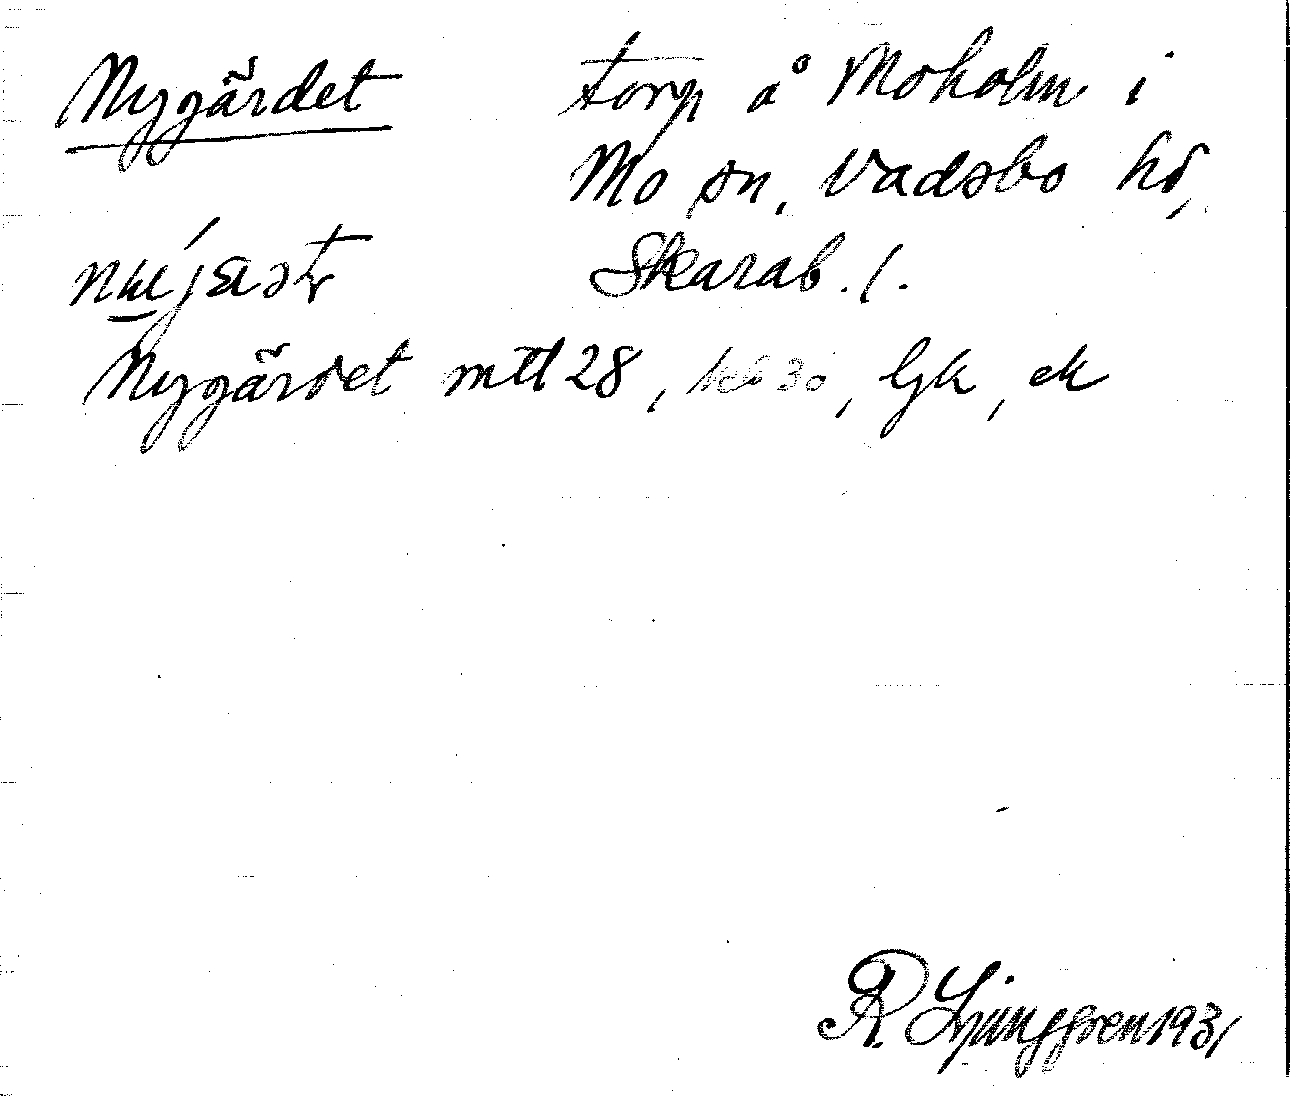 Nygärdet torp å Moholm i
Mo sn, Vadsbo hd,
Skarab. l.
Nygärdet mtl 28, kb 30, lgk, ek
R. Ljunggren 1931